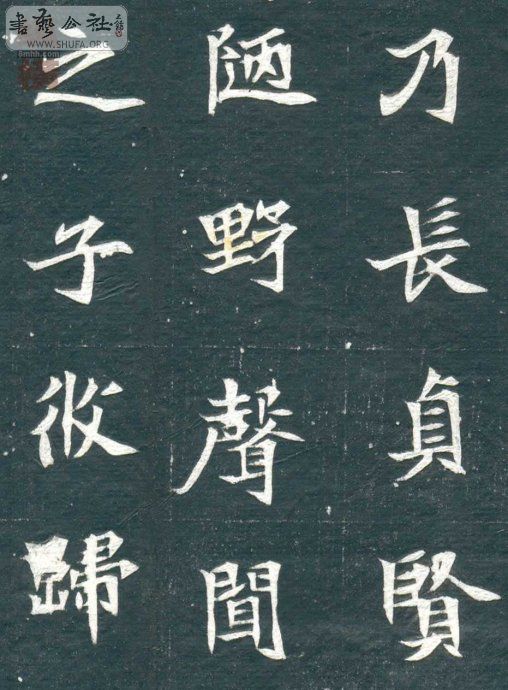 書藝公社
WWW.SHUFA.ORG
8mhh.com
乃長貞賢
陋野聲聞
之子攸歸